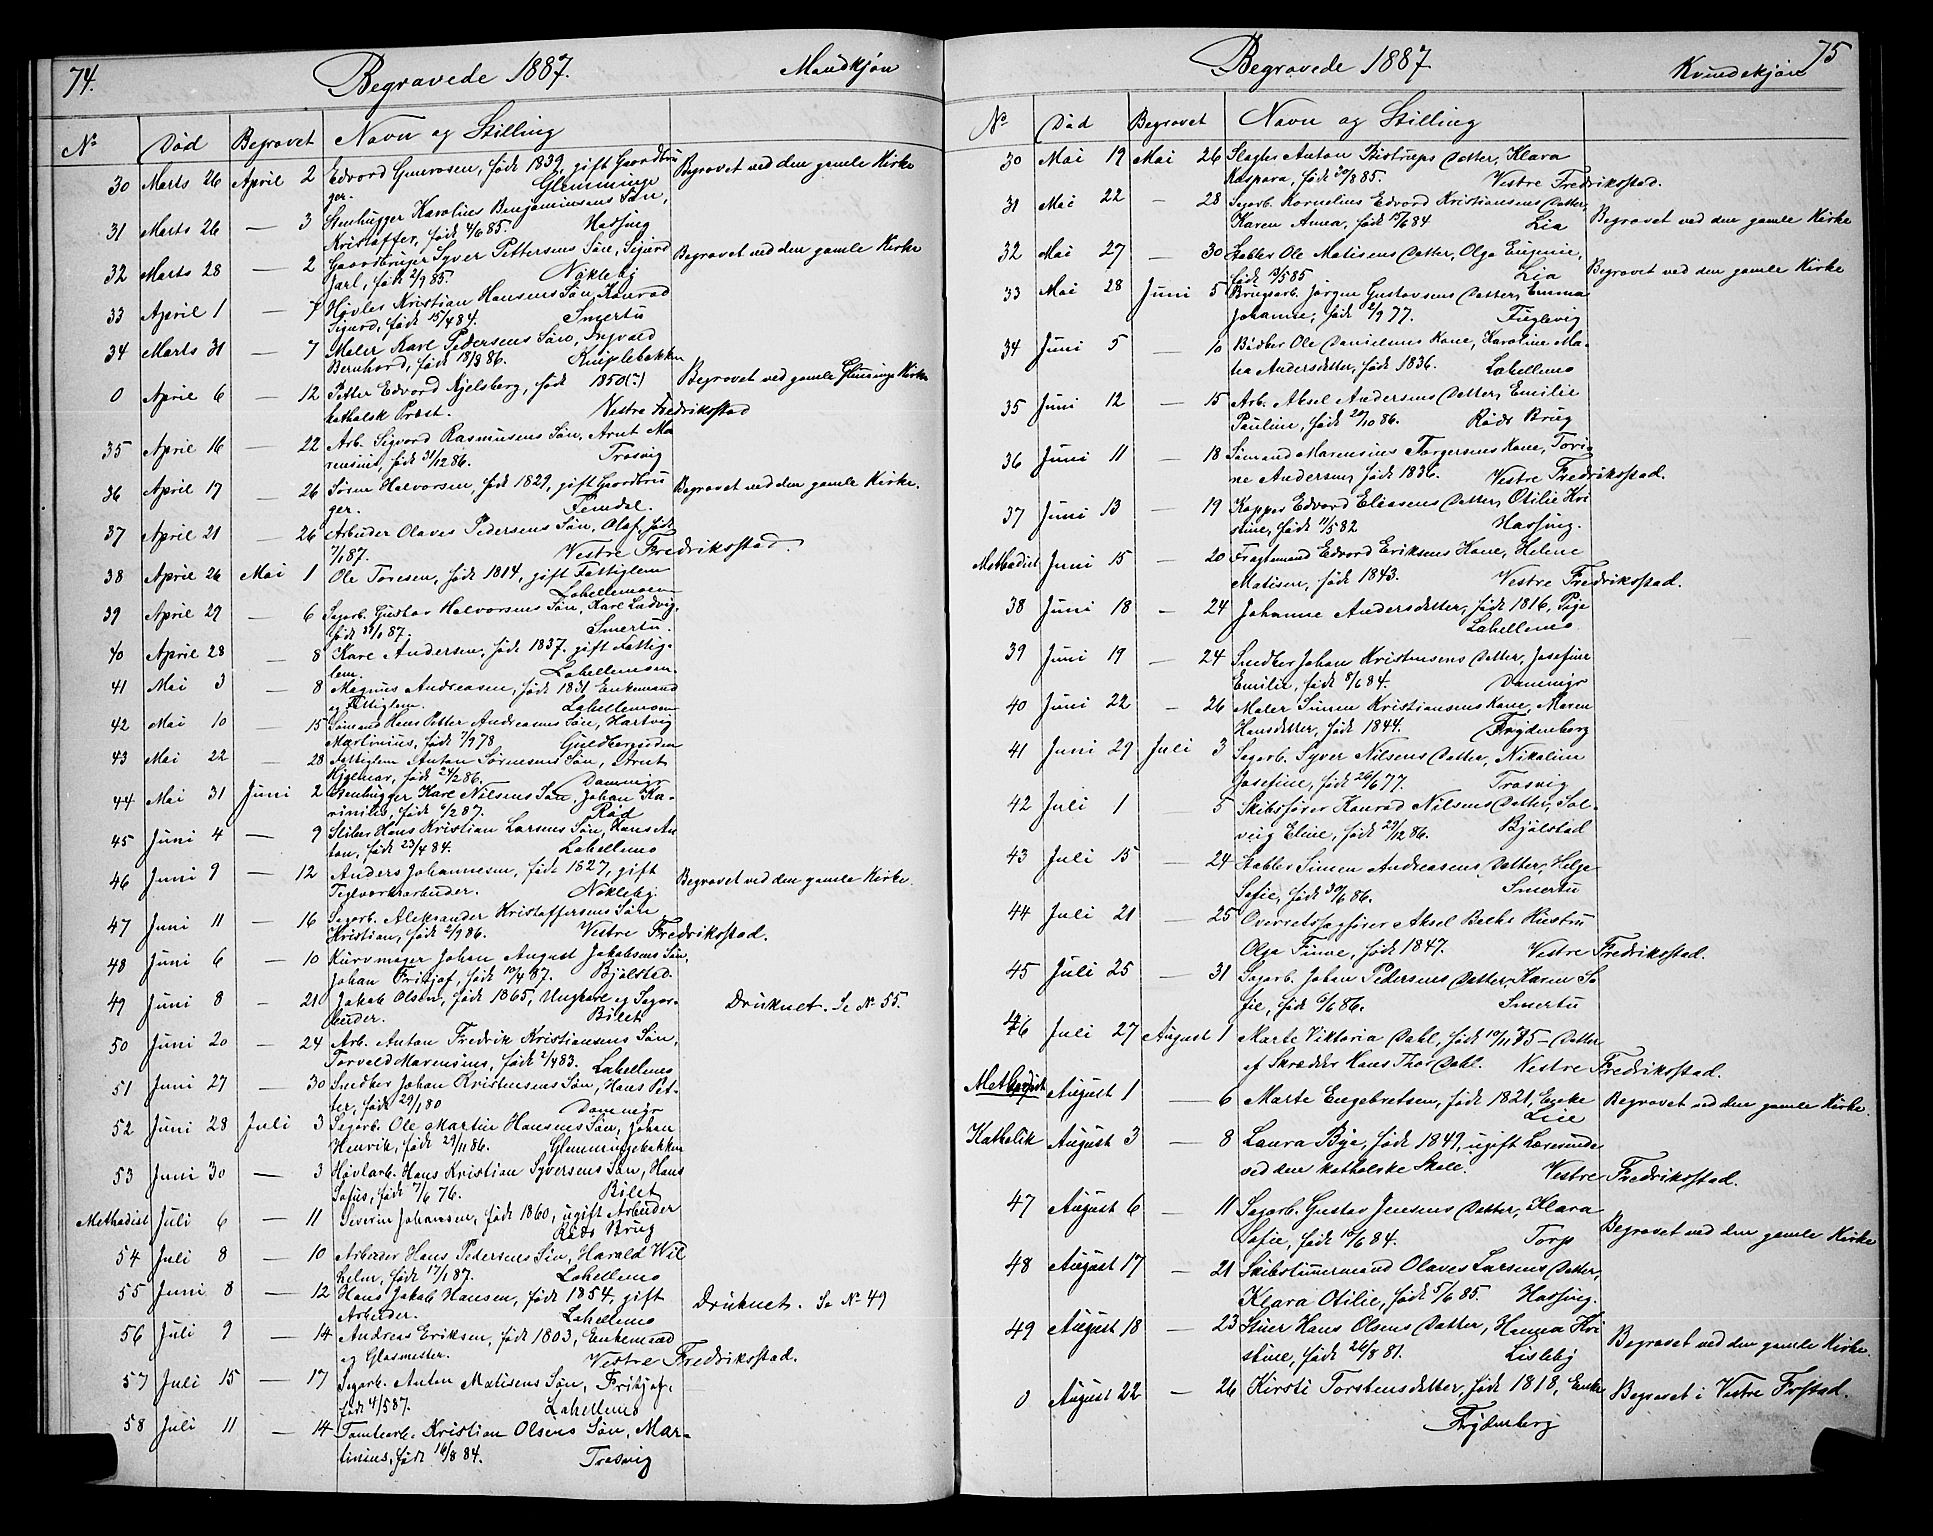 74.
Begravede 1887.
Mandkjøn
No Død Begravet Navn og Stilling
30 Marts 26 April 2 Edvard Gunvorsen, født 1839, gift Gaardbru Begravet ved den gamle Kirke
ger. Glemminge
31 Marts 26 — 3 Stenhugger Karolius Benjaminsens Søn,
Kristoffer, født 4/6 85. Hassing
32 Marts 28 — 2 Gaardbruger Syver Pettersens Søn, Sigurd Begravet ved den gamle Kirke
Jarl, født 2/9 85. Nökleby
33 April 1 — 7 Høvler Kristian Hansens Søn, Konrad
Sigurd, født 15/4 84. Smertu
34 Marts 31 — 7 Maler Karl Pedersens Søn, Ingvald
Bernhard, født 18/8 86. Kniplebakken
0 April 6 — 12 Petter Edvard Kjelsberg, født 1850(?) Begravet ved gamle Glemminge Kirke
katholsk Præst. Vestre Fredriksstad
35 April 16 — 22 Arb. Sigvard Rasmusens Søn, Arnt Ma
rensius, født 31/12 86. Trosvig
36 April 17 — 26 Sören Halvorsen, født 1829, gift Gaardbru Begravet ved den gamle Kirke.
ger. Femdal.
37 April 21 — 26 Arbeider Olaves Pedersens Søn, Olaf, født
7/1 87. Vestre Fredriksstad.
38 April 26 Mai 1 Ole Toresen, født 1814, gift Fattiglem
Lahellemoen
39 April 29 — 6 Sagarb. Gustav Halvorsens Søn, Karl Ludvig,
født 31/1 87. Smertu.
40 April 28 — 8 Karl Andersen, født 1837. gift Fattig-
lem. Lahellemoen.
41 Mai 3 — 8 Magnus Andreasen, født 1831 Enkemand
og Fattiglem. Lahellemoen
42 Mai 10 — 15 Sömand Hans Petter Andreasens Søn, Hartvig
Martinius, født 7/9 78 Guldbergsuden
43 Mai 22 — 28 Fattiglem Anton Sörensens Søn, Arnt
Hjalmar, født 24/2 86. Dammyr
44 Mai 31 Juni 2 Stenhugger Karl Nilsens Søn, Johan Ka-
rinilis, født 6/2 87. Råd
45 Juni 4 — 9 Sliber Hans Kristian Larsens Søn, Hans An
ton, født 23/4 84. Lahellemo
46 Juni 9 — 12 Anders Johannesen, født 1827, gift Begravet ved den gamle Kirke.
Teglværksarbeider. Nökleby.
47 Juni 11 — 16 Sagarb. Aleksander Kristoffersens Søn
Kristian, født 2/9 86. Vestre Fredriksstad.
48 Juni 6 — 10 Kurvmager Johan August Jakobsens Søn,
Johan Fritjof, født 19/4 87. Bjölstad.
49 Juni 8 — 21 Jakob Olsen, født 1865, Ungkarl og Sagar- Druknet. Se No 55.
beider. Bilet
50 Juni 20 — 24 Arb. Anton Fredrik Kristiansens Søn,
Torvald Marensius, født 2/4 83. Lahellemo
51 Juni 27 — 30 Smedker Johan Kristensens Søn, Hans Pet-
ter, født 29/1 80 Dammyr
52 Juni 28 Juli 3 Sagarb. Ole Martin Hansens Søn, Johan
Henrik, født 29/11 86. Glemmingebakken
53 Juni 30 — 3 Høvlarb. Hans Kristian Syversens Søn, Hans
Sofus, født 7/6 76. Bilet
Methodist Juli 6 — 11 Severin Johansen, født 1860, ugift Arbeider
Röds Brug
54 Juli 8 — 10 Arbeider Hans Pedersens Søn, Harald Wil
helm, født 17/1 87. Lahellemo
55 Juni 8 — 12 Hans Jakob Hansen, født 1854, gift Druknet. Se No 49
Arbeider. Lahellemo
56 Juli 9 — 14 Andreas Eriksen, født 1803, Enkemand
og Glasmester. Vestre Fredriksstad.
57 Juli 15 — 17 Sagarb. Anton Matisens Søn, Frithjof,
født 4/5 87. Lahellemo
58 Juli 11 — 14 Tomtearb. Kristian Olsens Søn, Mar-
tinius, født 16/8 84. Trosvig
75
Begravede 1887
Kvindekjøn
No Død Begravet Navn og Stilling
30 Mai 19 Mai 26 Slagter Anton Bistrups Datter, Klara
Kaspara, født 30/8 85. Vestre Fredriksstad.
31 Mai 22 — 28 Sagarb. Kornelius Edvard Kristiansens Datter, Begravet ved den gamle Kirke
Karen Anna, født 15/6 84 Lia
32 Mai 27 — 30 Stabler Ole Matisens Datter, Olga Eugenie, Begravet ved den gamle Kirke
født 13/5 85 Lia
33 Mai 28 Juni 5 Brugsarb. Jörgen Gustavsens Datter, Emma
Johanne, født 2/9 77. Fuglevig
34 Juni 5 — 10 Bödker Ole Danielsens Kone, Karoline Ma-
tea Andersdatter, født 1836. Lahellemo
35 Juni 12 — 15 Arb. Aksel Andersens Datter, Emilie
Pauline, født 29/10 86. Röds Brug
36 Juni 11 — 18 Sömand Marensius Torgersens Kone, Tori-
ne Andersen, født 1836. Vestre Fredriksstad.
37 Juni 13 — 19 Kapper Edvard Eliasens Datter, Otilie Kri
stine, født 11/5 82 Hassing.
Methodist Juni 15 — 20 Fragtmand Edvard Eriksens Kone, Helene
Matisen, født 1843. Vestre Fredriksstad.
38 Juni 18 — 24 Johanne Andersdatter, født 1816, Pige
Lahellemo
39 Juni 19 — 24 Smedker Johan Kristensens Datter, Josefine
Emilie, født 8/6 84. Dammyr
40 Juni 22 — 26 Maler Simen Kristiansens Kone, Maren
Hansdatter, født 1844. Frydenberg
41 Juni 29 Juli 3 Sagarb. Syver Nilsens Datter, Nikoline
Josefine, født 26/6 77. Trosvig
42 Juli 1 5 Skibsfører Konrad Nilsens Datter, Sol-
veig Eline, født 29/12 86. Bjölstad
43 Juli 15 — 24 Stabler Simen Andreasens Datter, Helga
Sofie, født 30/6 86. Smertu
44 Juli 21 — 25 Overretssagfører Aksel Belks Hustru
Olga Finne, født 1847. Vestre Fredriksstad.
45 Juli 25 — 31 Sagarb. Johan Pedersens Datter, Karen So
fie, født 6/6 86. Smertu
46 Juli 27 August 1 Marte Viktoria Dahl, født 19/11 75 - Datter
af Skrædder Hans Thor Dahl. Vestre Fredriksstad.
Methodist August 1 — 6 Marte Engebretsen, født 1821, Enke Begravet ved den gamle Kirke.
Lie
Katholik August 3 — 8 Laura Bye, født 1849, ugift Lærerinde
ved den katholske Skole. Vestre Fredriksstad.
47 August 6 — 11 Sagarb. Gustav Jensens Datter, Klara Begravet ved den gamle Kirke
Sofie, født 16/6 84. Torp
48 August 17 — 21 Skibstömmermand Olaves Larsens Datter,
Klara Otilie, født 5/6 85. Hassing.
49 August 18 — 23 Stuer Hans Olsens Datter, Hanna Kri Begravet ved den gamle Kirke.
stine, født 26/8 81. Lisleby
0 August 22 — 26 Kirsti Torstensdatter, født 1818, Enke Begravet i Vestre Frstad.
Frydenberg